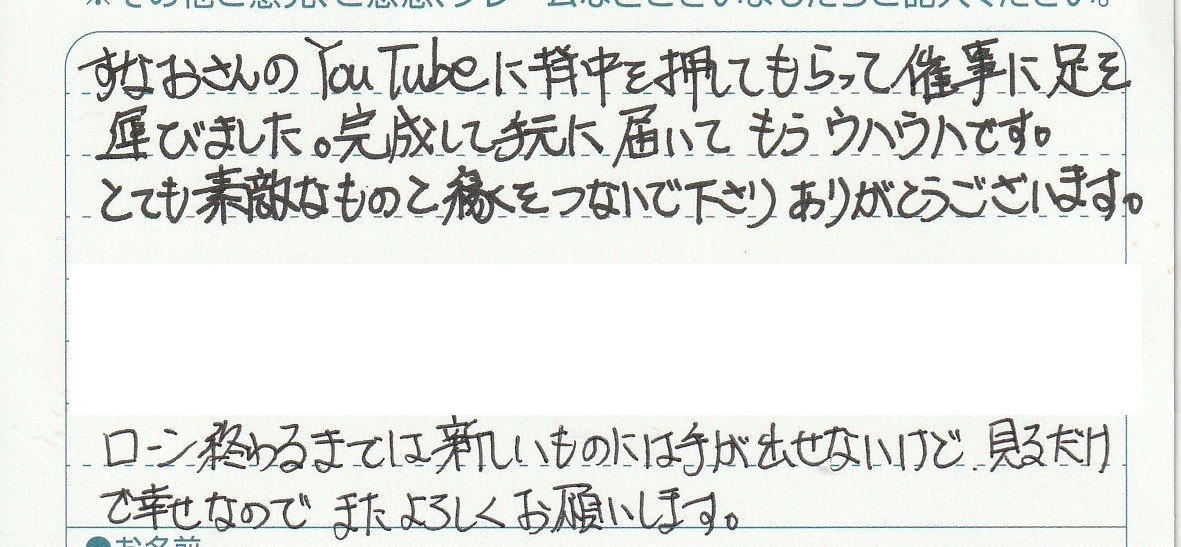 ※その他ご意見、ご感想、クレームなどございましたらご記入ください。
すなおさんのYouTubeに背中を押してもらって催事に足を
運びました。完成して手元に届いて もう ウハウハです。
とても素敵なものと縁をつないで下さり ありがとうございます。
ローン終わるまでは新しいものには手が出せないけど、見るだけ
で幸せなので またよろしくお願いします。
●お名前